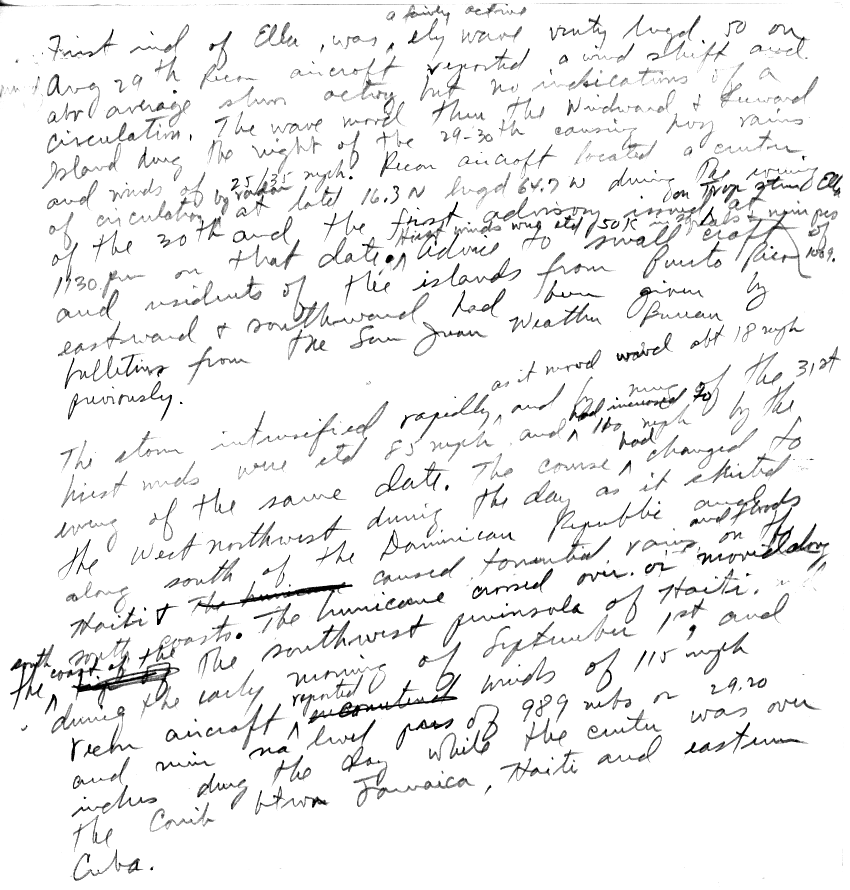 a fairly active
First ind of Ella, was, ely wave vcnty lngd 50 on
Aug 29th Recon aircraft reported a wind shift and
abv average shwr activity but no indications of a
circulation. The wave moved thru the Windward & Leeward
Island durg the night of the 29-30th causing hvy rains
and winds of 25/35 mph. Recon aircraft located a center
of circulation by radar at latd 16.3 N lngd 64.7 W during the evening
on trop storm Ella
of the 30th and the first advisory issued at
1130 pm on that date. Hiest winds were etd 50K in squalls & min pres of 1009.
Advice to small craft
and residents of the islands from Puerto Rico
eastward & southward had been given by
bulletins from the San Juan Weather Bureau
previously.
as it moved wnwd abt 18 mph
The storm intensified rapidly, and by mng of the 31st
hiest winds were etd 85 mph and had increased to 110 mph by the
eveng of the same date. The course had changed to
the West northwest during the day as it skirted
along south of the Dominican Republic and
Haiti & caused torrential rains and floods on the
south coasts. The hurricane crossed over or moved along
south coast of the
the southwest peninsula of Haiti.
during the early morning of September 1st, and
recon aircraft reported winds of 115 mph
and min sea level pres of 989 mbs or 29.20
inches durg the day while the center was over
the Carib btwn Jamaica, Haiti and eastern
Cuba.